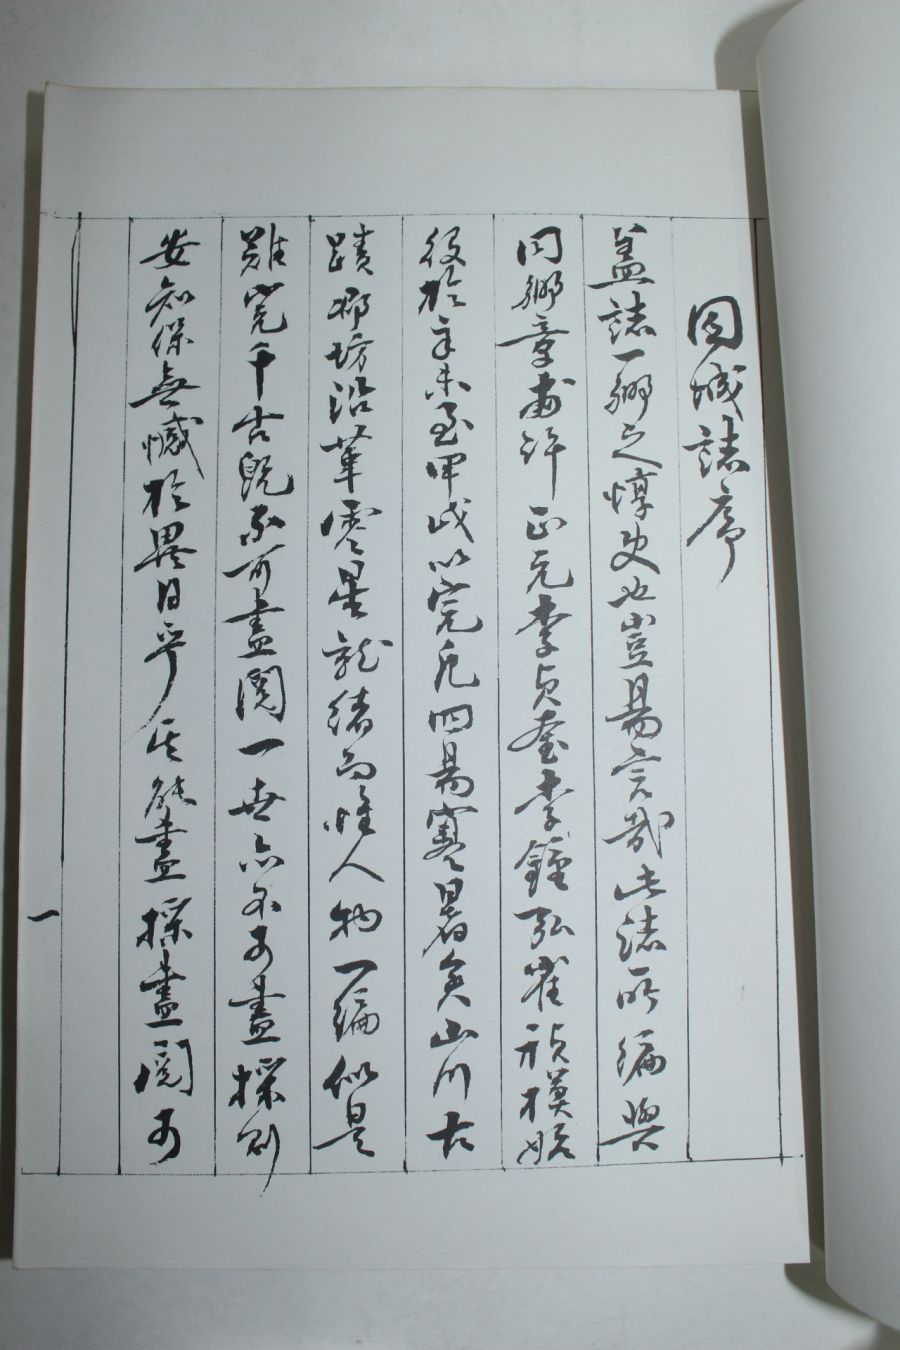 固城誌序
盖誌一鄕之惇史也豈易言哉此誌所編與
同鄕章甫許正元李貞奎李鍾弘崔禎模始
役於辛未至甲戌以完凡四易寒暑矣山川古
蹟鄕坊沿革零星就緖而惟人物一編似是
難完千古旣不可盡閱一世亦不可盡採則
安知保無憾於異日乎其能盡採盡閱可
一